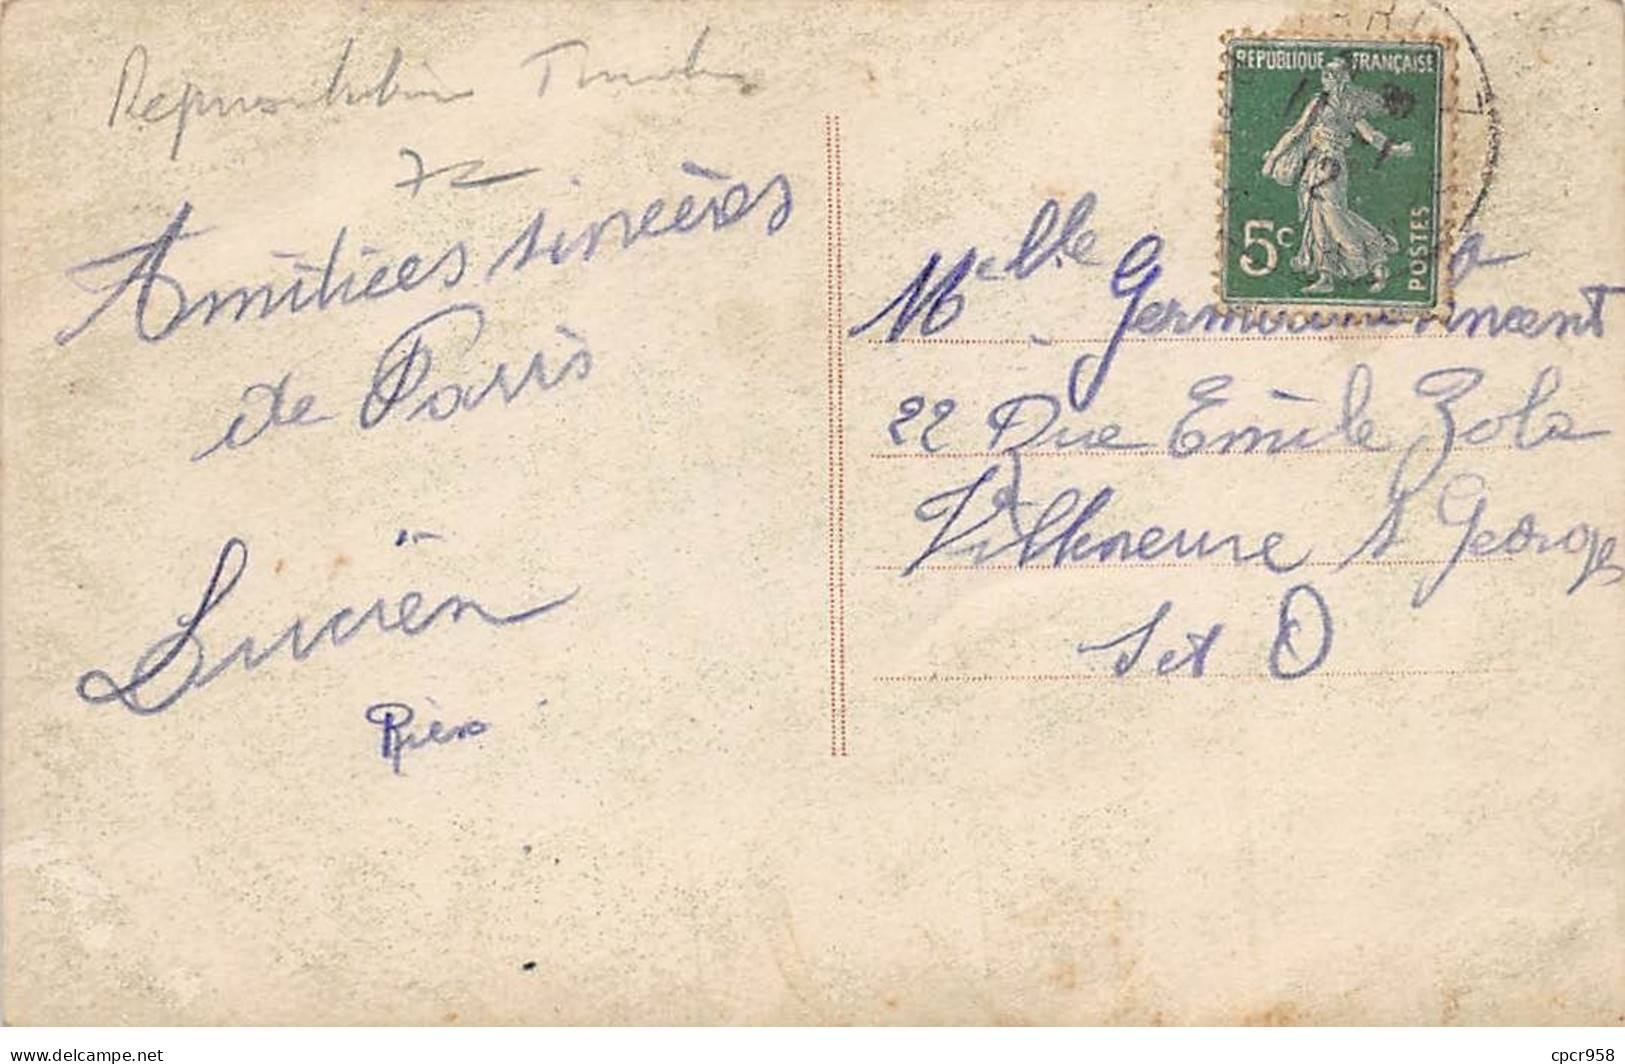 72
Amitiées sincères
de Paris
Lucien
REPUBLIQUE FRANÇAISE
12
5c
POSTES
Melle Germaine Vincent
22 Rue Emile Zola
Villeneuve St Georges
S et O
delcampe.net
cpcr958